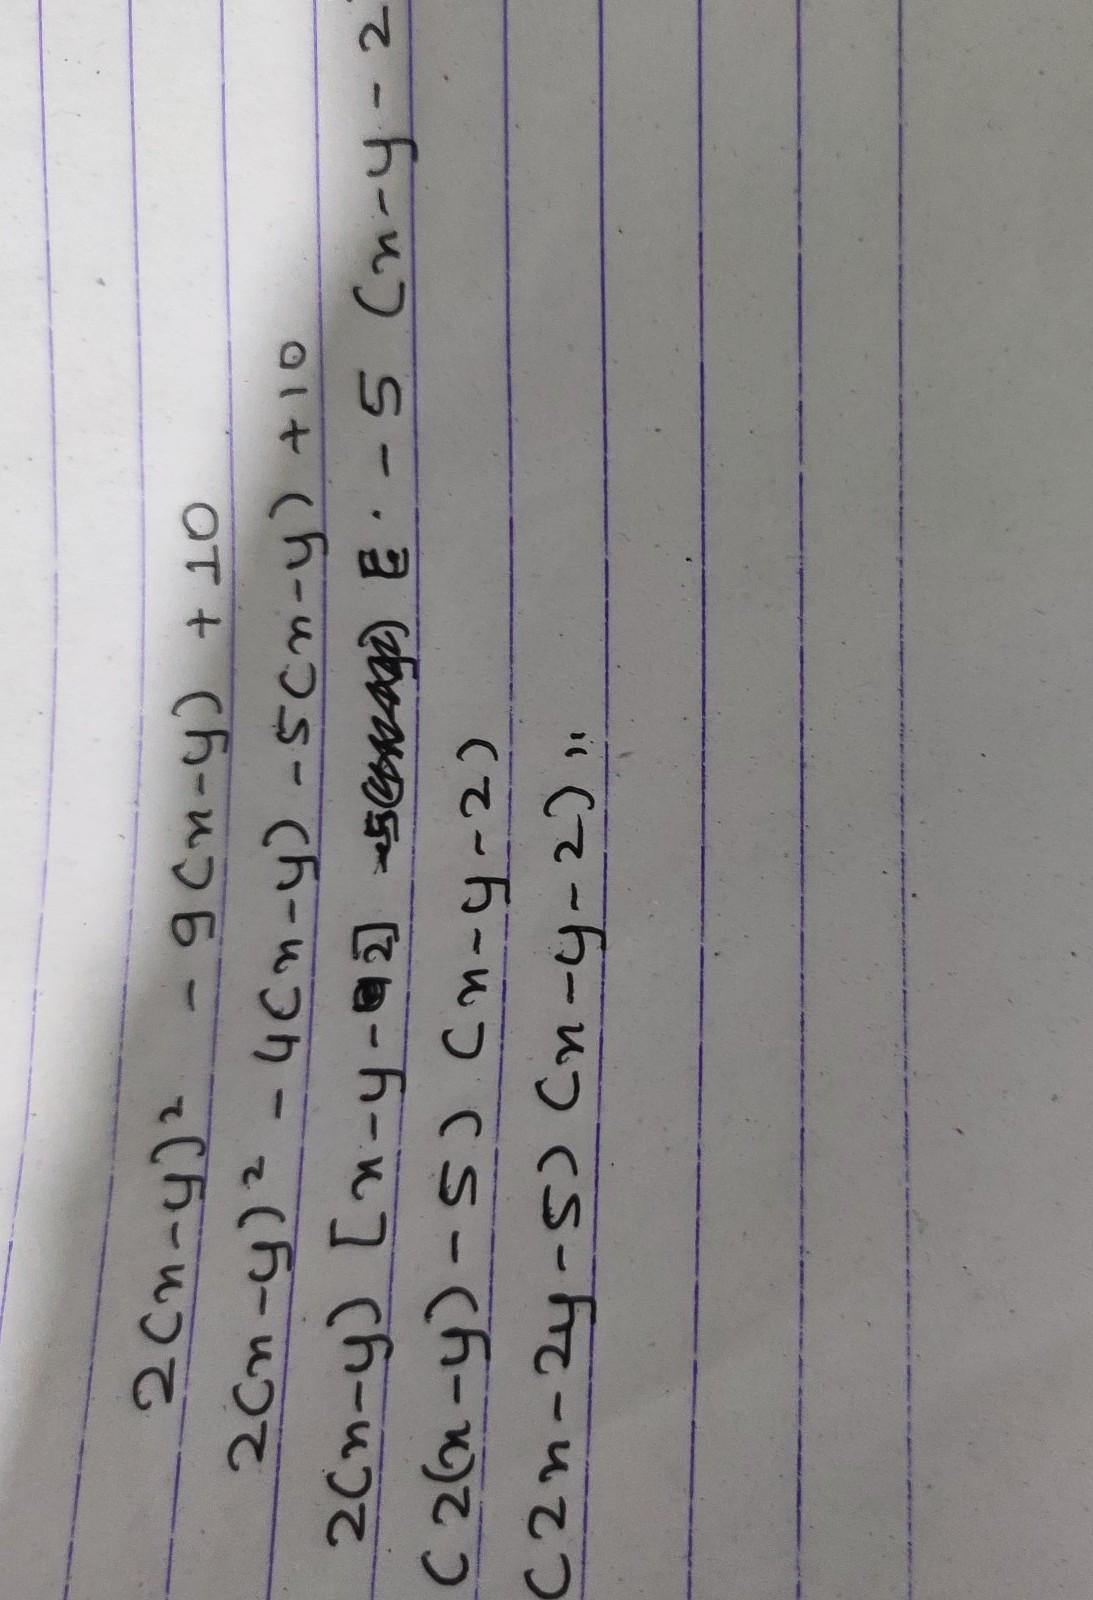 2(x-y)² - 9(x-y) + 10
2(x-y)² - 4(x-y) - 5(x-y) + 10
2(x-y) [x-y-2] - 5 (x-y-2
(2(x-y)-5) (x-y-2)
(2x-2y-5) (x-y-2)"